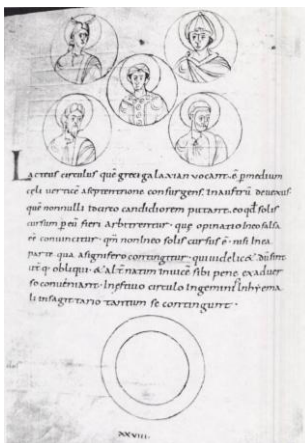 Lacteus circulus quē greci galaxian vocant · ē p medium
celi vertice a septentrione consurgens · in austrū devexus
quē nonnulli idcirco candidiorem putant · eo qđ solis
cursum p eū fieri arbitrentur · que opinatio ideo falsa
ēē convincitur · qm̄ non in eo solis cursus ē · nisi in ea
parte qua a signifero contingitur · qui videlic&
obliqui · & alt natim invice sibi pene ex adver
so conveniant · in estivo circulo in geminī · in hyema
li in sagittario tantum se contingunt ·
XXVIII ·